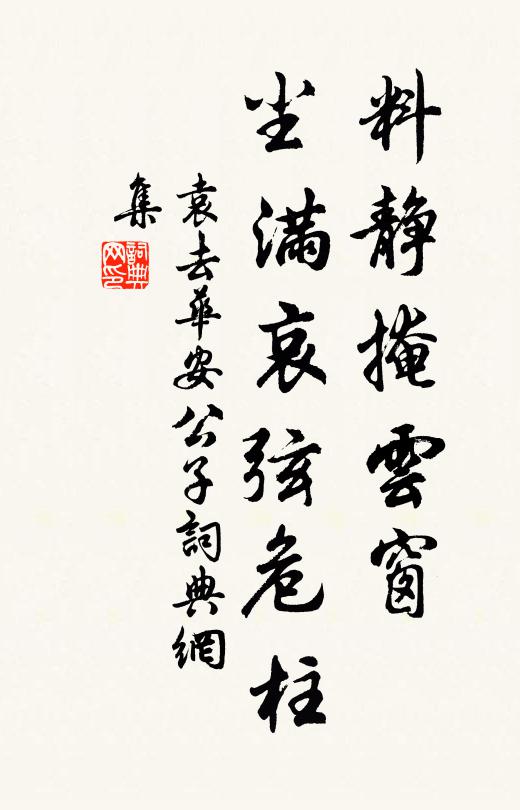 料靜掩雲窗
尘滿哀弦危柱
袁去華安公子詞典網
集
詞典
网印